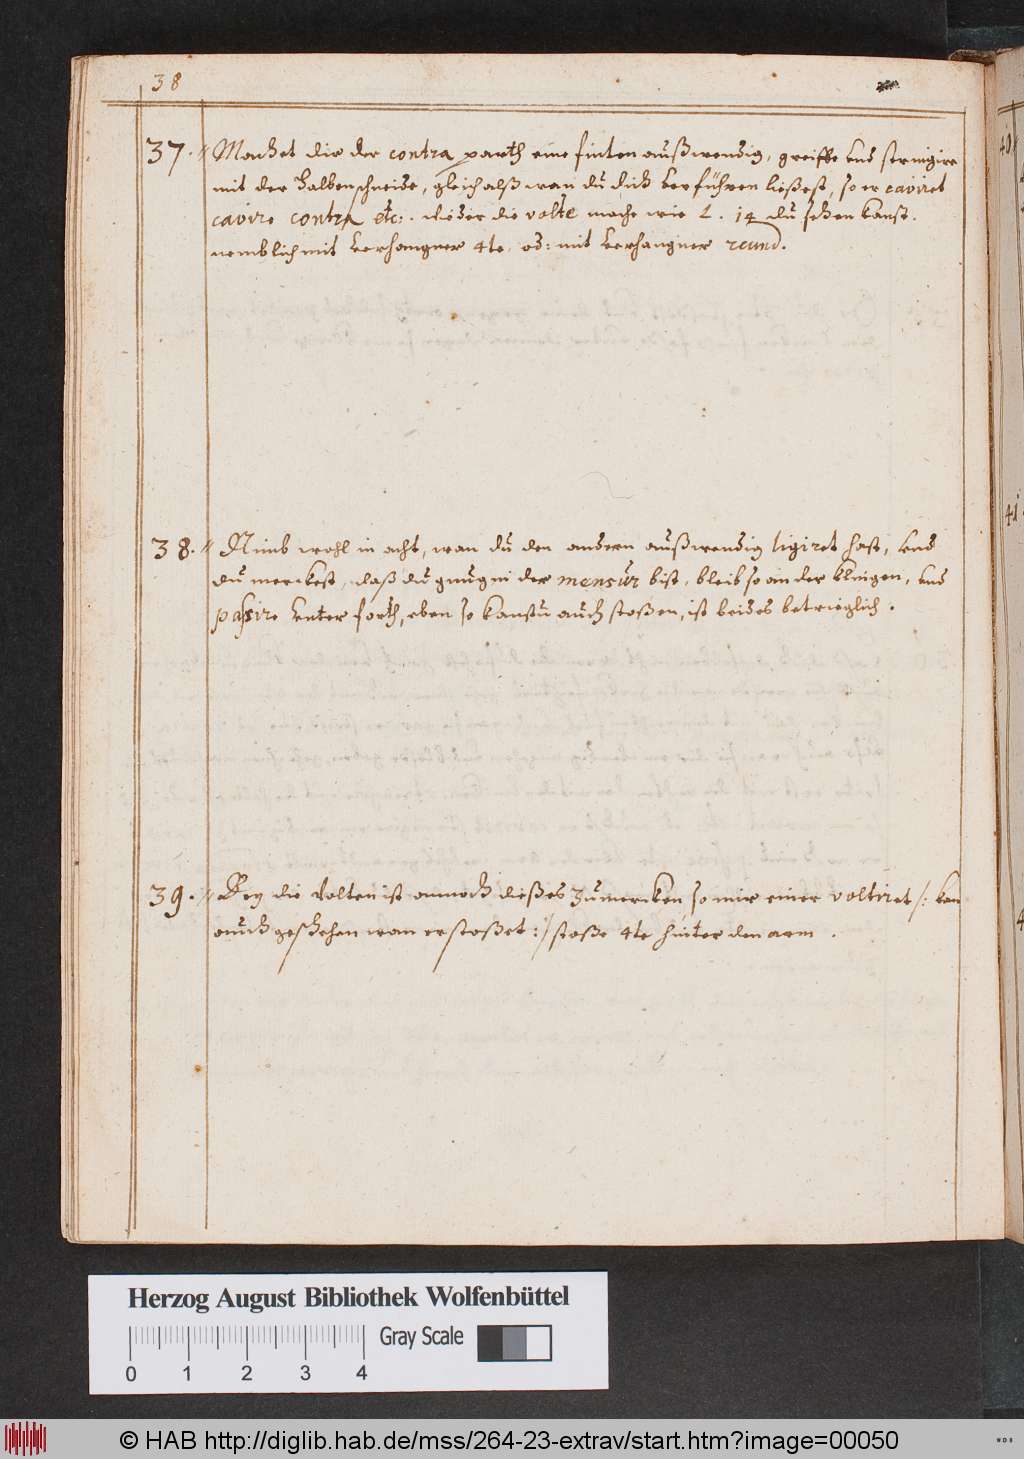 38
37. // Machet dir der contra parth eine finten außwendig, greiffe und stringire
mit der halben schneide, gleich alß wan du dich verführen ließest, so er caviret
cavire contra etc: . wieder die volte mache wie L. 14 du sehen kanst.
nemblich mit verhangner 4te. od: mit verhangner secund.
38. // Nimb wohl in acht, wan du den andern außwendig ligiret hast, und
du merckest, daß du gnug in der mensur bist, bleib so an der klingen, und
passire unter forth, eben so kanstu auch stoßen, ist beides betrieglich.
39. // Bey die Volten ist annoch dießes zumercken so mir einer voltiret /: kan
auch geschehen wan er stoßet :/ stoße 4te hinter den arm .
Herzog August Bibliothek Wolfenbüttel
Gray Scale
0 1 2 3 4
© HAB http://diglib.hab.de/mss/264-23-extrav/start.htm?image=00050